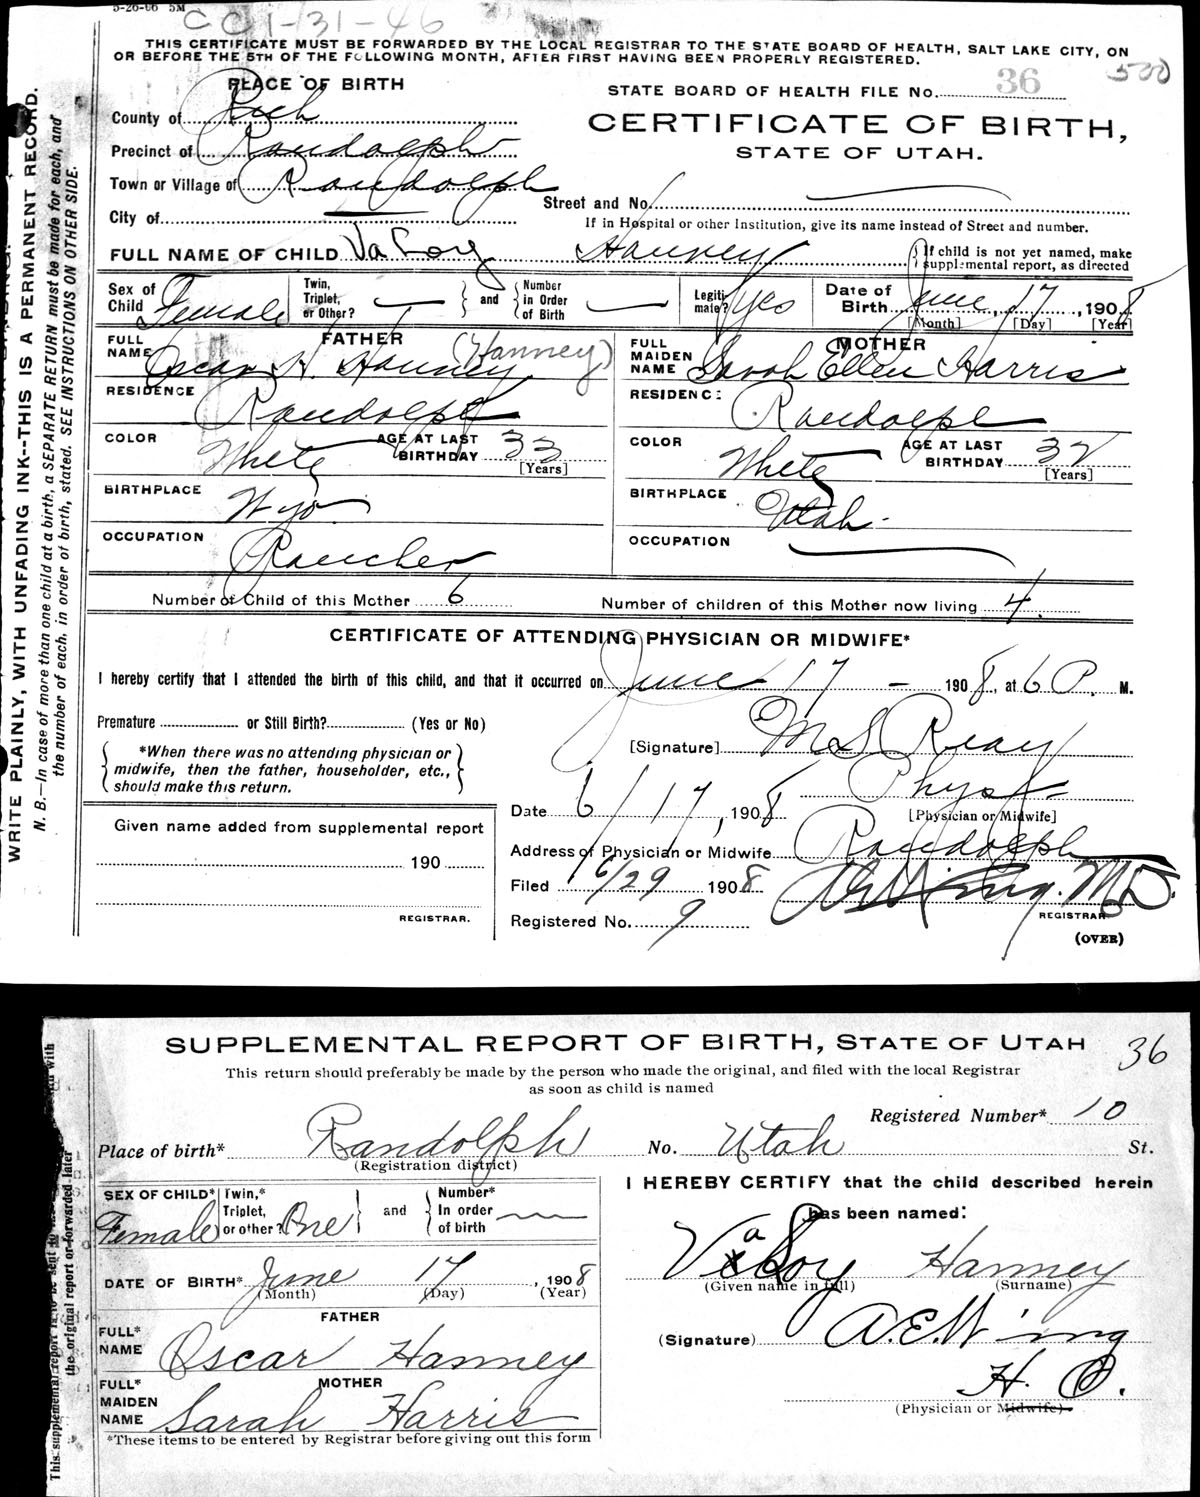 5-26-06 5M
CC 1-31-46
THIS CERTIFICATE MUST BE FORWARDED BY THE LOCAL REGISTRAR TO THE STATE BOARD OF HEALTH, SALT LAKE CITY, ON
OR BEFORE THE 5TH OF THE FOLLOWING MONTH, AFTER FIRST HAVING BEEN PROPERLY REGISTERED.
500
PLACE OF BIRTH
STATE BOARD OF HEALTH FILE No. 36
County of Rich
CERTIFICATE OF BIRTH,
Precinct of Randolph
STATE OF UTAH.
Town or Village of Randolph
Street and No.
City of
If in Hospital or other Institution, give its name instead of Street and number.
FULL NAME OF CHILD VaLoy Hanney
If child is not yet named, make
supplemental report, as directed
Sex of Child Female
Twin, Triplet, or Other? — and Number in Order of Birth —
Legitimate? yes
Date of Birth June 17, 1908
[Month] [Day] [Year]
FATHER
FULL NAME Oscar H. Hanney (Hanney)
RESIDENCE Randolph
COLOR White AGE AT LAST BIRTHDAY 33
[Years]
BIRTHPLACE Wyo
OCCUPATION Rancher
MOTHER
FULL MAIDEN NAME Sarah Ellen Harris
RESIDENCE Randolph
COLOR White AGE AT LAST BIRTHDAY 32
[Years]
BIRTHPLACE Utah
OCCUPATION
Number of Child of this Mother 6 Number of children of this Mother now living 4
CERTIFICATE OF ATTENDING PHYSICIAN OR MIDWIFE*
I hereby certify that I attended the birth of this child, and that it occurred on June 17 — 1908, at 6 P. M.
Premature or Still Birth? (Yes or No)
*When there was no attending physician or
midwife, then the father, householder, etc.,
should make this return.
[Signature] Reay
Phys
[Physician or Midwife]
Date 6/17, 1908
Address of Physician or Midwife Randolph
Filed 6/29 1908
M.D.
REGISTRAR
Registered No. 9
(OVER)
Given name added from supplemental report
190
REGISTRAR.
WRITE PLAINLY, WITH UNFADING INK--THIS IS A PERMANENT RECORD.
N. B.—In case of more than one child at a birth, a SEPARATE RETURN must be made for each, and
the number of each, in order of birth, stated. SEE INSTRUCTIONS ON OTHER SIDE.
SUPPLEMENTAL REPORT OF BIRTH, STATE OF UTAH 36
This return should preferably be made by the person who made the original, and filed with the local Registrar
as soon as child is named
Registered Number* 10
Place of birth* Randolph No. Utah St.
(Registration district)
SEX OF CHILD* Female
Twin,* Triplet, or other? One and Number* In order of birth
DATE OF BIRTH* June 17, 1908
(Month) (Day) (Year)
FATHER
FULL* NAME Oscar Hanney
MOTHER
FULL* MAIDEN NAME Sarah Harris
*These items to be entered by Registrar before giving out this form
I HEREBY CERTIFY that the child described herein
has been named:
VaLoy Hanney
(Given name in full) (Surname)
(Signature) A.E. Wing
H. O.
(Physician or Midwife)
the original report or forwarded later